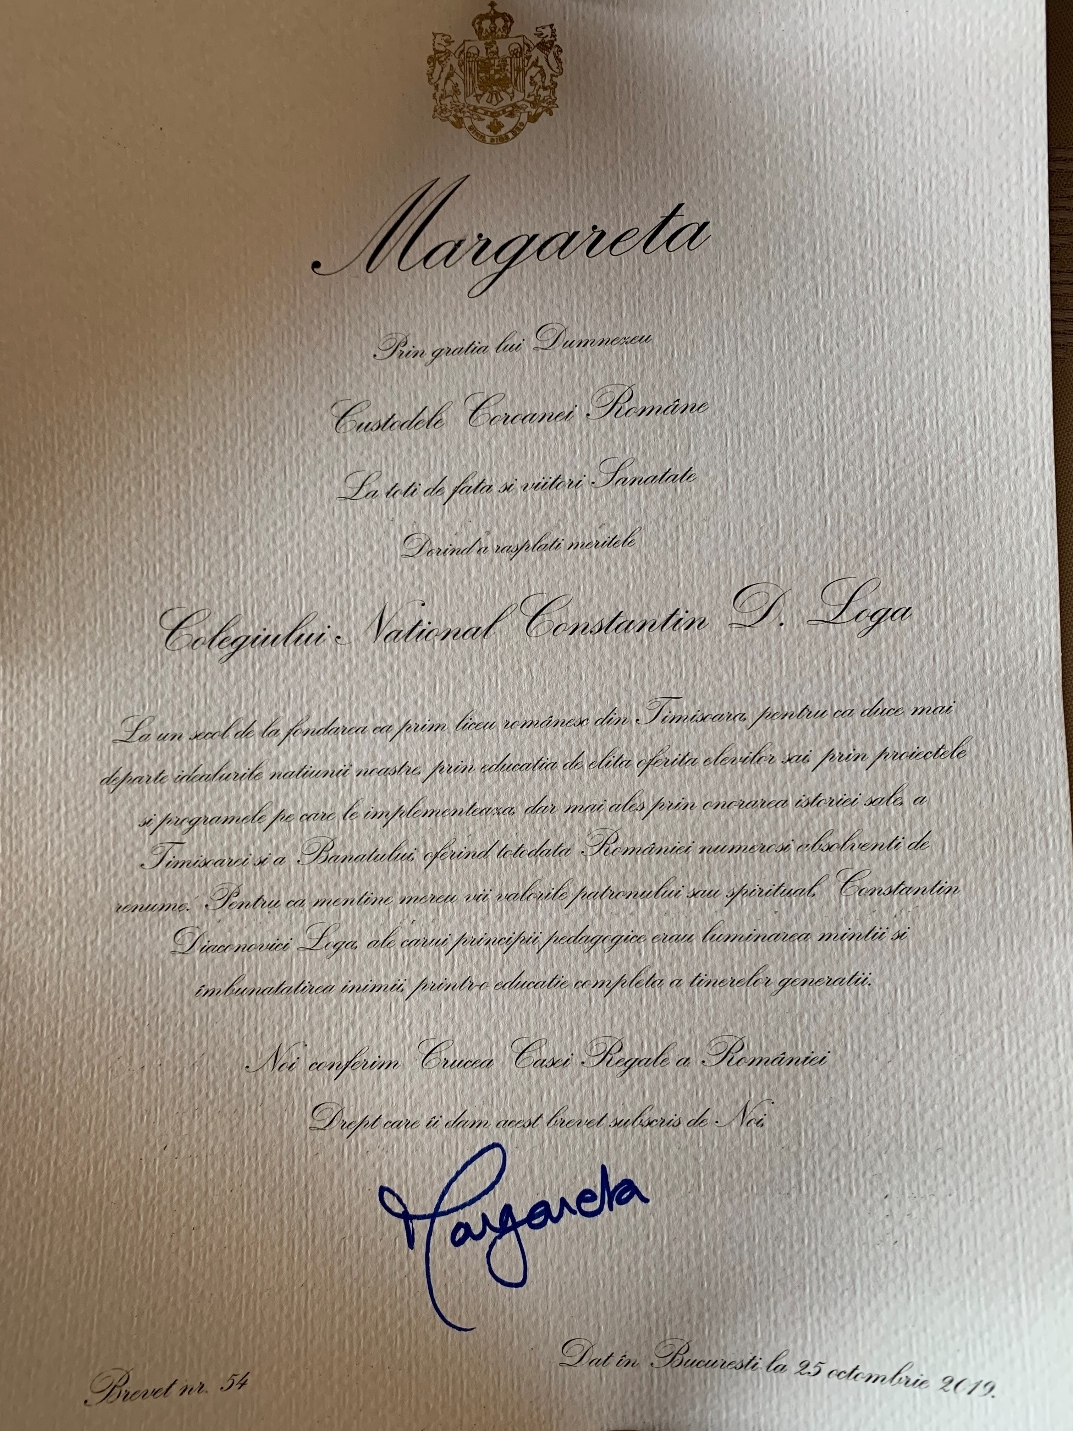 Margareta
Prin gratia lui Dumnezeu
Custodele Coroanei Române
La toti de fata si viitori Sanatate
Dorind a rasplati meritele
Colegiului National Constantin D. Loga
La un secol de la fondarea ca prim liceu românesc din Timisoara, pentru ca duce mai
departe idealurile natiunii noastre, prin educatia de elita oferita elevilor sai, prin proiectele
si programele pe care le implementeaza, dar mai ales prin onorarea istoriei sale, a
Timisoarei si a Banatului, oferind totodata României numerosi absolventi de
renume. Pentru ca mentine mereu vii valorile patronului sau spiritual, Constantin
Diaconovici Loga, ale carui principii pedagogice erau luminarea mintii si
îmbunatatirea inimii, printr-o educatie completa a tinerelor generatii.
Noi conferim Crucea Casei Regale a României
Drept care îi dam acest brevet subscris de Noi,
Margareta
Dat în Bucuresti la 25 octombrie 2019.
Brevet nr. 54